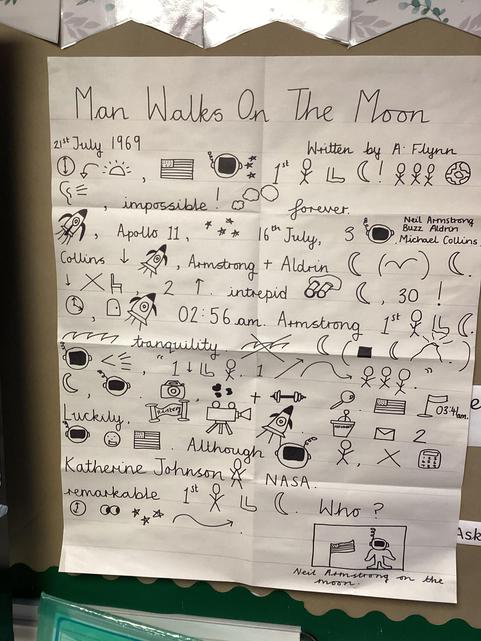 Man Walks On The Moon
21st July 1969
Written by A. Flynn
1st
!
, impossible! forever.
, Apollo 11, 16th July, 3
Neil Armstrong
Buzz Aldrin
Michael Collins
Collins ↓ , Armstrong + Aldrin ( ) .
↓ , 2 ↑ . intrepid , 30 !
, 02:56 am. Armstrong 1st .
tranquility ( )
< , "1 ↓ . 1 ."
, . +
03:41am.
Luckily,
2
. Although , X
Katherine Johnson NASA.
remarkable 1st . Who?
Neil Armstrong on the
moon.